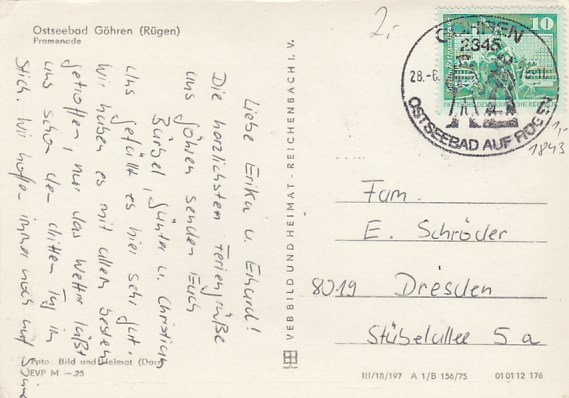 Ostseebad Göhren (Rügen)
Promenade
Liebe Erika u. Erhard!
Die herzlichsten Feriengrüße
aus Göhren senden Euch
Bärbel, Günter u. Christian
Uns gefällt es hier sehr gut.
Wir haben es mit allem bestens
getroffen, nur das Wetter läßt
uns schon den dritten Tag im
Stich. Wir hoffen immer noch auf
Foto: Bild und Heimat
EVP M —.25
VEB BILD UND HEIMAT · REICHENBACH I. V.
2,-
GÖHREN
2345
28.-6.
OSTSEEBAD AUF RÜGEN
10
1,-
1843
Fam.
E. Schröder
8019 Dresden
Stübelallee 5a
III/18/197 A 1/B 156/75 01 01 12 176